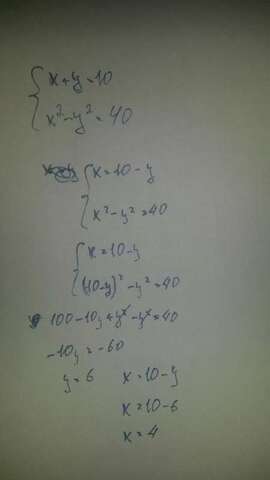 x+y=10
x²-y²=40
x=10-y
x²-y²=40
x=10-y
(10-y)²-y²=40
100-10y+y²-y²=40
-10y=-60
y=6 x=10-y
x=10-6
x=4